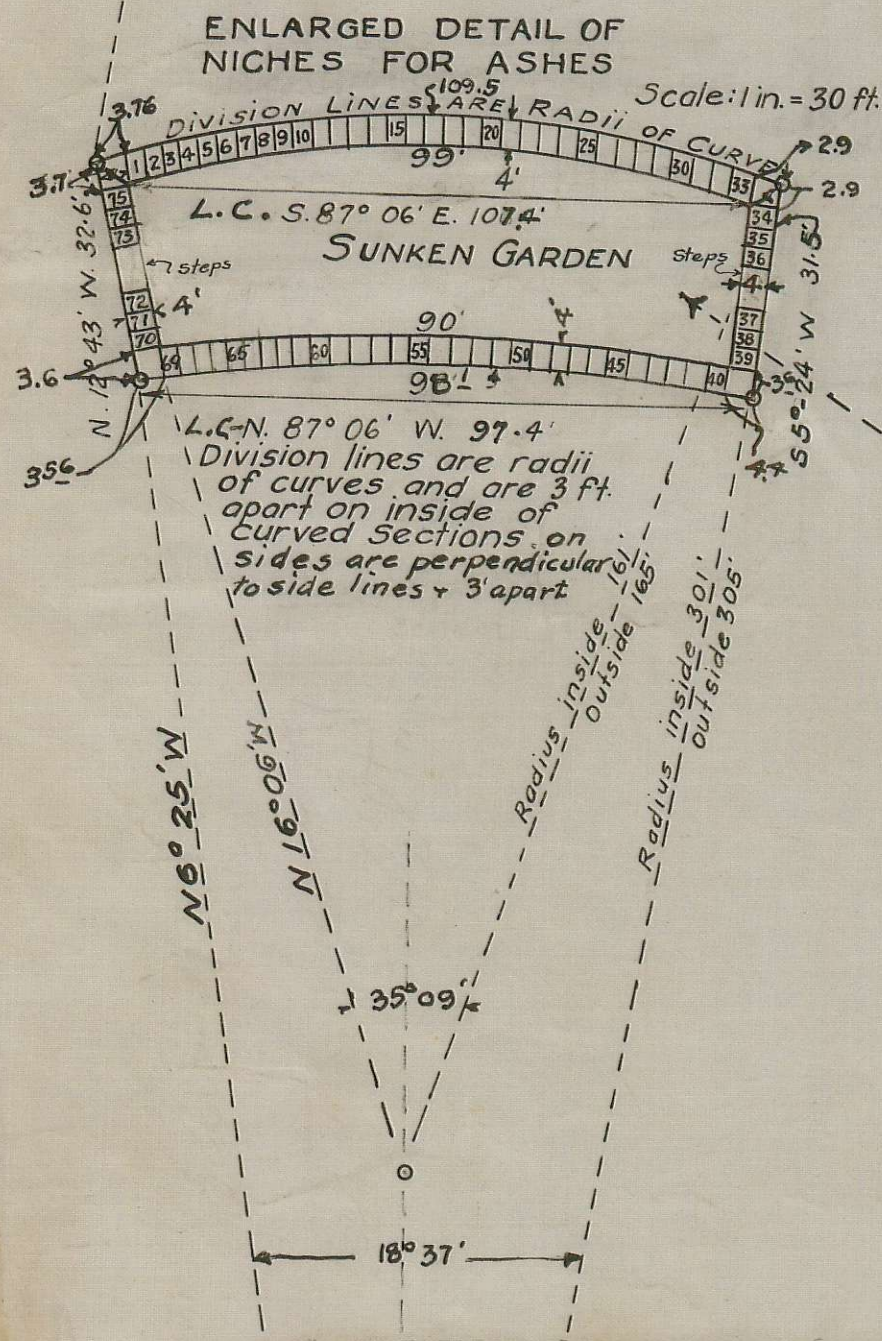 ENLARGED DETAIL OF
NICHES FOR ASHES
Scale: 1 in. = 30 ft.
109.5
DIVISION LINES ARE RADII OF CURVE
3.76
3.7
2.9
2.9
1 2 3 4 5 6 7 8 9 10 15 20 25 30 33
99'
4'
L.C. S. 87° 06' E. 107.4'
SUNKEN GARDEN
75
74
73
steps
72
71
70
4'
N. 12° 43' W. 32.6'
34
35
36
steps
4
37
38
39
S 5° 24' W 31.5'
90'
4'
69 65 60 55 50 45 40
98'
3.6
3.6
3 56
4.4
L.C-N. 87° 06' W. 97.4'
Division lines are radii
of curves and are 3 ft.
apart on inside of
curved Sections on
sides are perpendicular
to side lines + 3' apart
Radius inside 161'
Outside 165'
Radius inside 301'
outside 305'
N 6° 25' W
N 16° 06' W
35° 09'
18° 37'